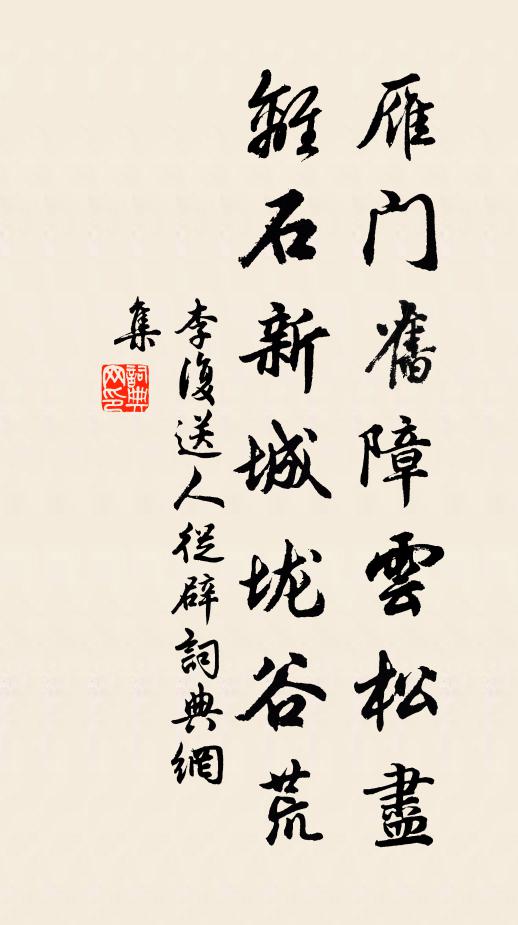 雁门舊障雲松盡
離石新城垅谷荒
李復送人從辟詞典網
集
詞典网印